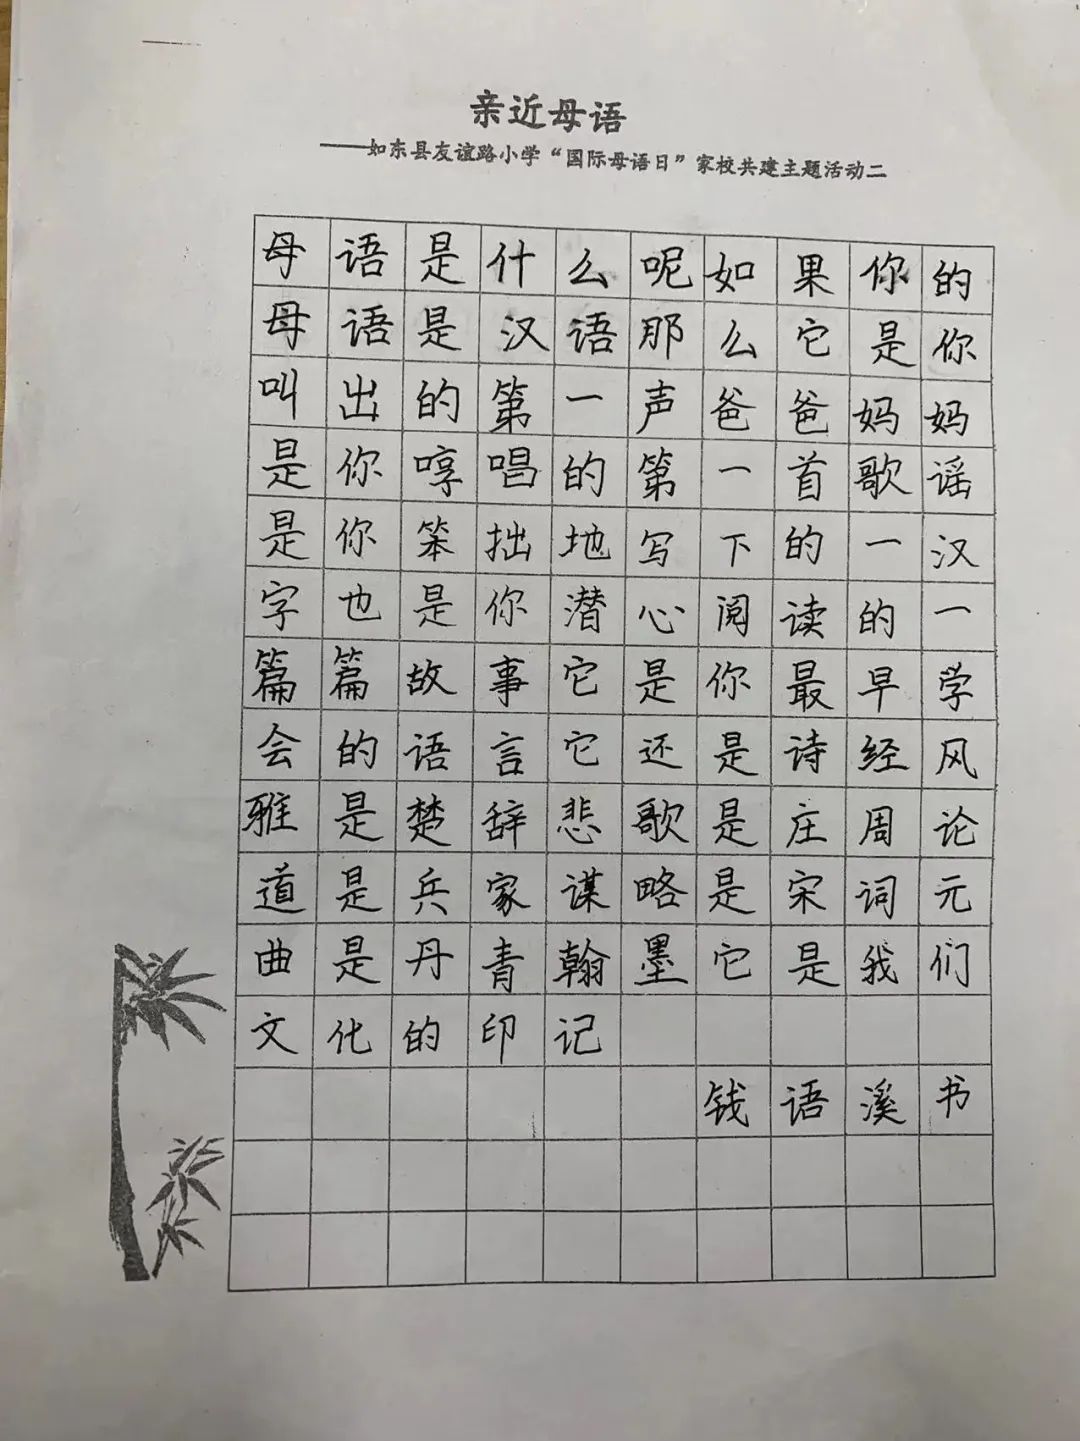 亲近母语
——如东县友谊路小学“国际母语日”家校共建主题活动二
母语是什么呢如果你的
母语是汉语那么它是你
叫出的第一声爸爸妈妈
是你哼唱的第一首歌谣
是你笨拙地写下的一汉
字也是你潜心阅读的一
篇篇故事它是你最早学
会的语言它还是诗经风
雅是楚辞悲歌是庄周论
道是兵家谋略是宋词元
曲是丹青翰墨它是我们
文化的印记
钱语溪书